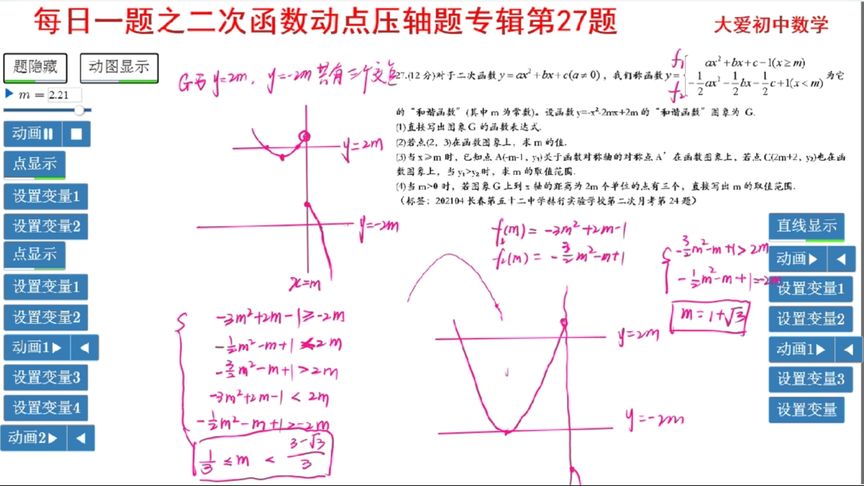 每日一题之二次函数动点压轴题专辑第27题
大爱初中数学
题隐藏
动图显示
m = 2.21
动画
点显示
设置变量1
设置变量2
点显示
设置变量1
设置变量2
动画1
设置变量3
设置变量4
动画2
G与y=2m, y=-2m 共有三个交点
27.(12分)对于二次函数y=ax²+bx+c(a≠0)，我们称函数y={ ax²+bx+c-1(x≥m)
-½ax²-½bx-½c+1(x<m) 为它
f₁
f₂
的“和谐函数”(其中m为常数)。设函数y=-x²-2mx+2m的“和谐函数”图象为 G.
(1)直接写出图象G的函数表达式.
(2)若点(2, 3)在函数图象上，求m的值.
(3)当x≥m时，已知点A(-m-1, y₁)关于函数对称轴的对称点A’在函数图象上，若点C(2m+2, y₂)也在函
数图象上，当y₁>y₂时，求m的取值范围.
(4)当m>0时，若图象G上到x轴的距离为2m个单位的点有三个，直接写出m的取值范围.
y=2m
y=-2m
x=m
f₁(m) = -3m²+2m-1
-3m²+2m-1≥-2m
-½m²-m+1>2m
-3m²+2m-1<2m
⅓≤m<
y=2m
y=-2m
m=1+√3
直线显示
动画
设置变量1
设置变量2
动画1
设置变量3
设置变量